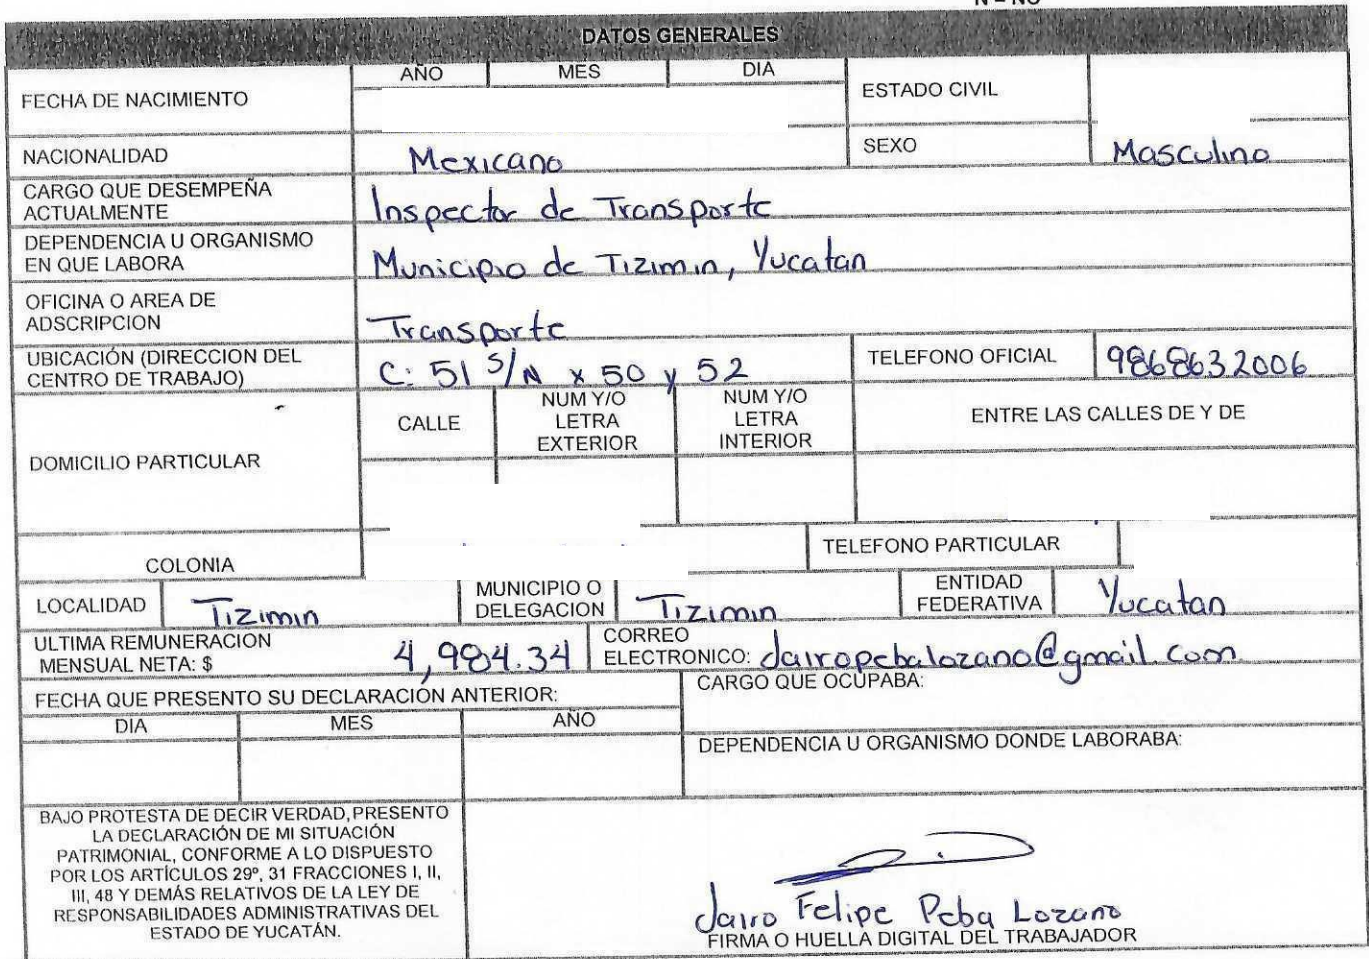 N = NO
DATOS GENERALES
FECHA DE NACIMIENTO
AÑO MES DIA
ESTADO CIVIL
NACIONALIDAD Mexicano SEXO Masculino
CARGO QUE DESEMPEÑA
ACTUALMENTE
Inspector de Transporte
DEPENDENCIA U ORGANISMO
EN QUE LABORA
Municipio de Tizimin, Yucatan
OFICINA O AREA DE
ADSCRIPCION
Transporte
UBICACIÓN (DIRECCION DEL
CENTRO DE TRABAJO)
C: 51 S/N x 50 y 52
TELEFONO OFICIAL 9868632006
DOMICILIO PARTICULAR
CALLE
NUM Y/O
LETRA
EXTERIOR
NUM Y/O
LETRA
INTERIOR
ENTRE LAS CALLES DE Y DE
COLONIA
TELEFONO PARTICULAR
LOCALIDAD Tizimin
MUNICIPIO O
DELEGACION
Tizimin
ENTIDAD
FEDERATIVA
Yucatan
ULTIMA REMUNERACION
MENSUAL NETA: $ 4,984.34
CORREO
ELECTRONICO: dairopebalozano@gmail.com
FECHA QUE PRESENTO SU DECLARACIÓN ANTERIOR:
DIA MES AÑO
CARGO QUE OCUPABA:
DEPENDENCIA U ORGANISMO DONDE LABORABA:
BAJO PROTESTA DE DECIR VERDAD, PRESENTO
LA DECLARACIÓN DE MI SITUACIÓN
PATRIMONIAL, CONFORME A LO DISPUESTO
POR LOS ARTÍCULOS 29º, 31 FRACCIONES I, II,
III, 48 Y DEMÁS RELATIVOS DE LA LEY DE
RESPONSABILIDADES ADMINISTRATIVAS DEL
ESTADO DE YUCATÁN.
Jairo Felipe Peba Lozano
FIRMA O HUELLA DIGITAL DEL TRABAJADOR